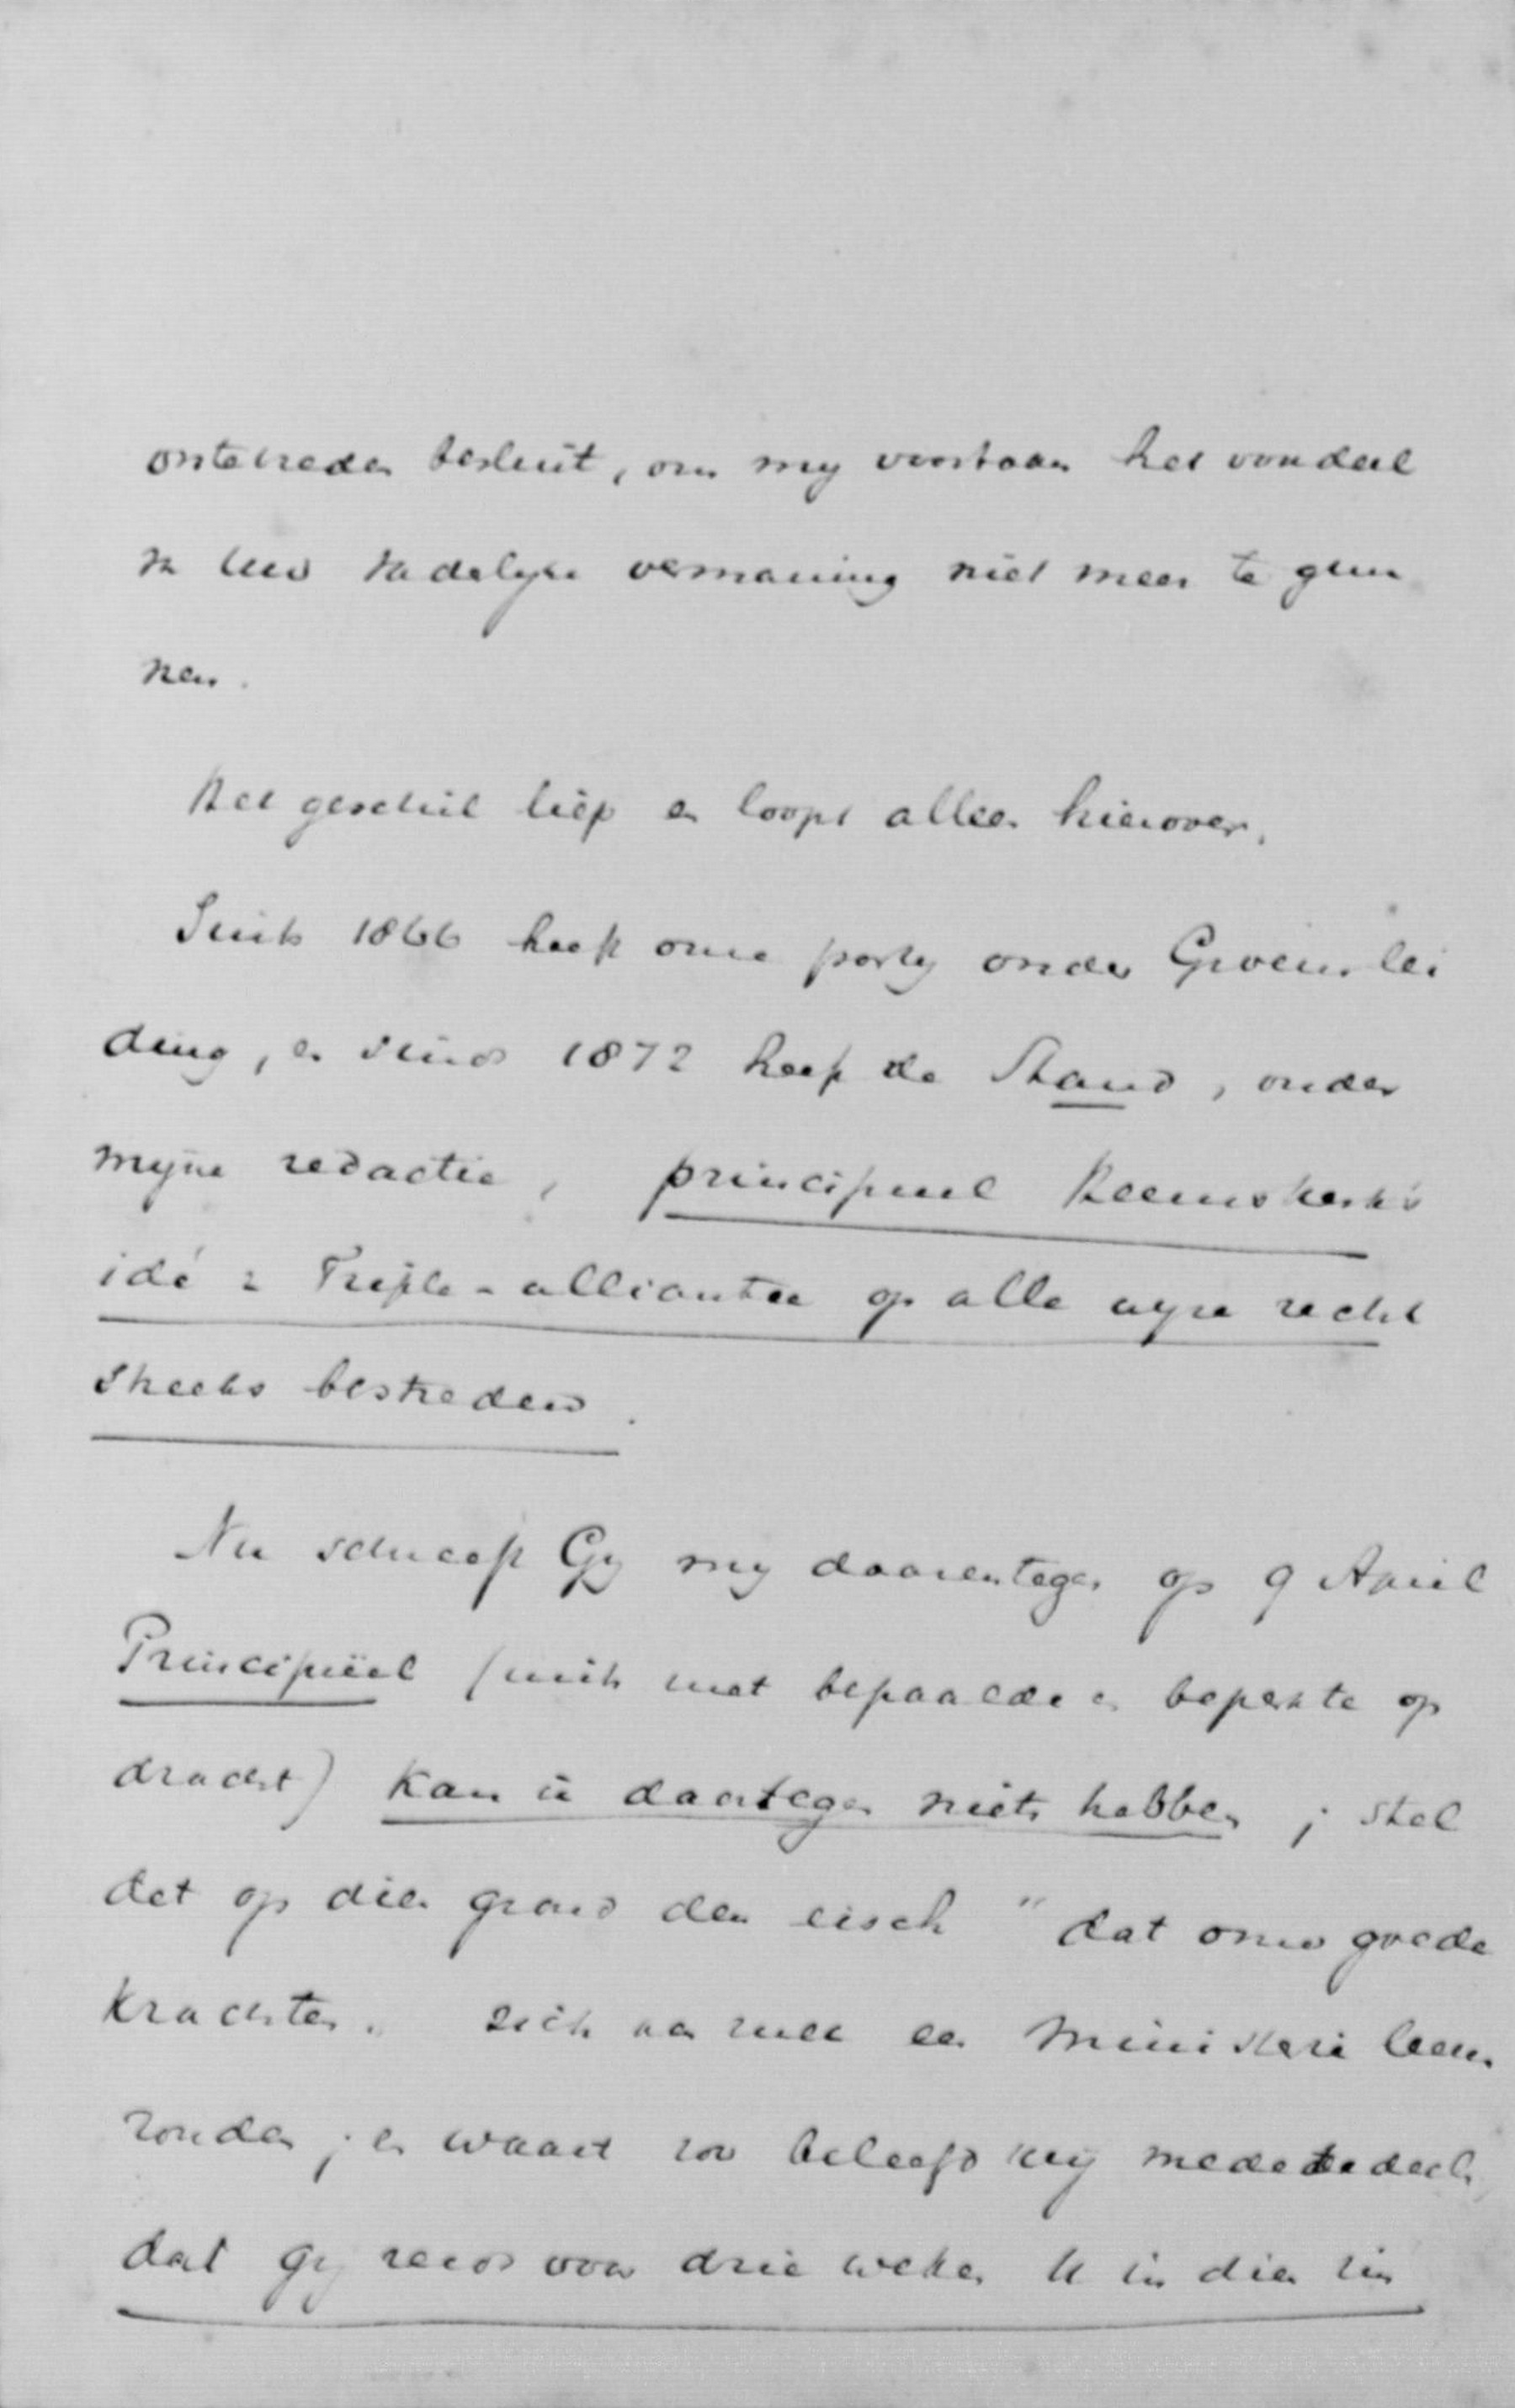 ontevreden besluit, om my voortaan het voordeel
van Uw zedelyke vermaning niet meer te gun
nen.
Het geschil liep en loopt alleen hierover.
Sints 1866 heeft onze party onder Groens lei
ding, en sinds 1872 heeft de Stand, onder
myne redactie, principieel Heemskerks
idé : Triple-alliantie op alle wyze recht
streeks bestreden.
Nu schreeft Gy my daarentegen op 9 April
Principiëel (mits met bepaalde en beperkte op
dracht) kan ik daartegen niets hebben; stel
det op dien grond den eisch "dat onze goede
krachten zich aan zulk een ministerie leenen
zouden; en waart zoo beleefd my mede te deelen
dat gy reeds voor drie weken U in dien zin